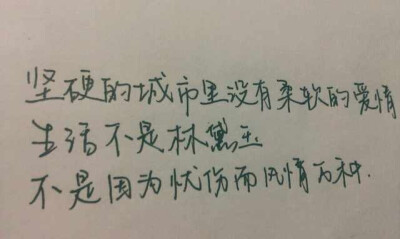 坚硬的城市里没有柔软的爱情
生活不是林黛玉
不是因为忧伤而风情万种.